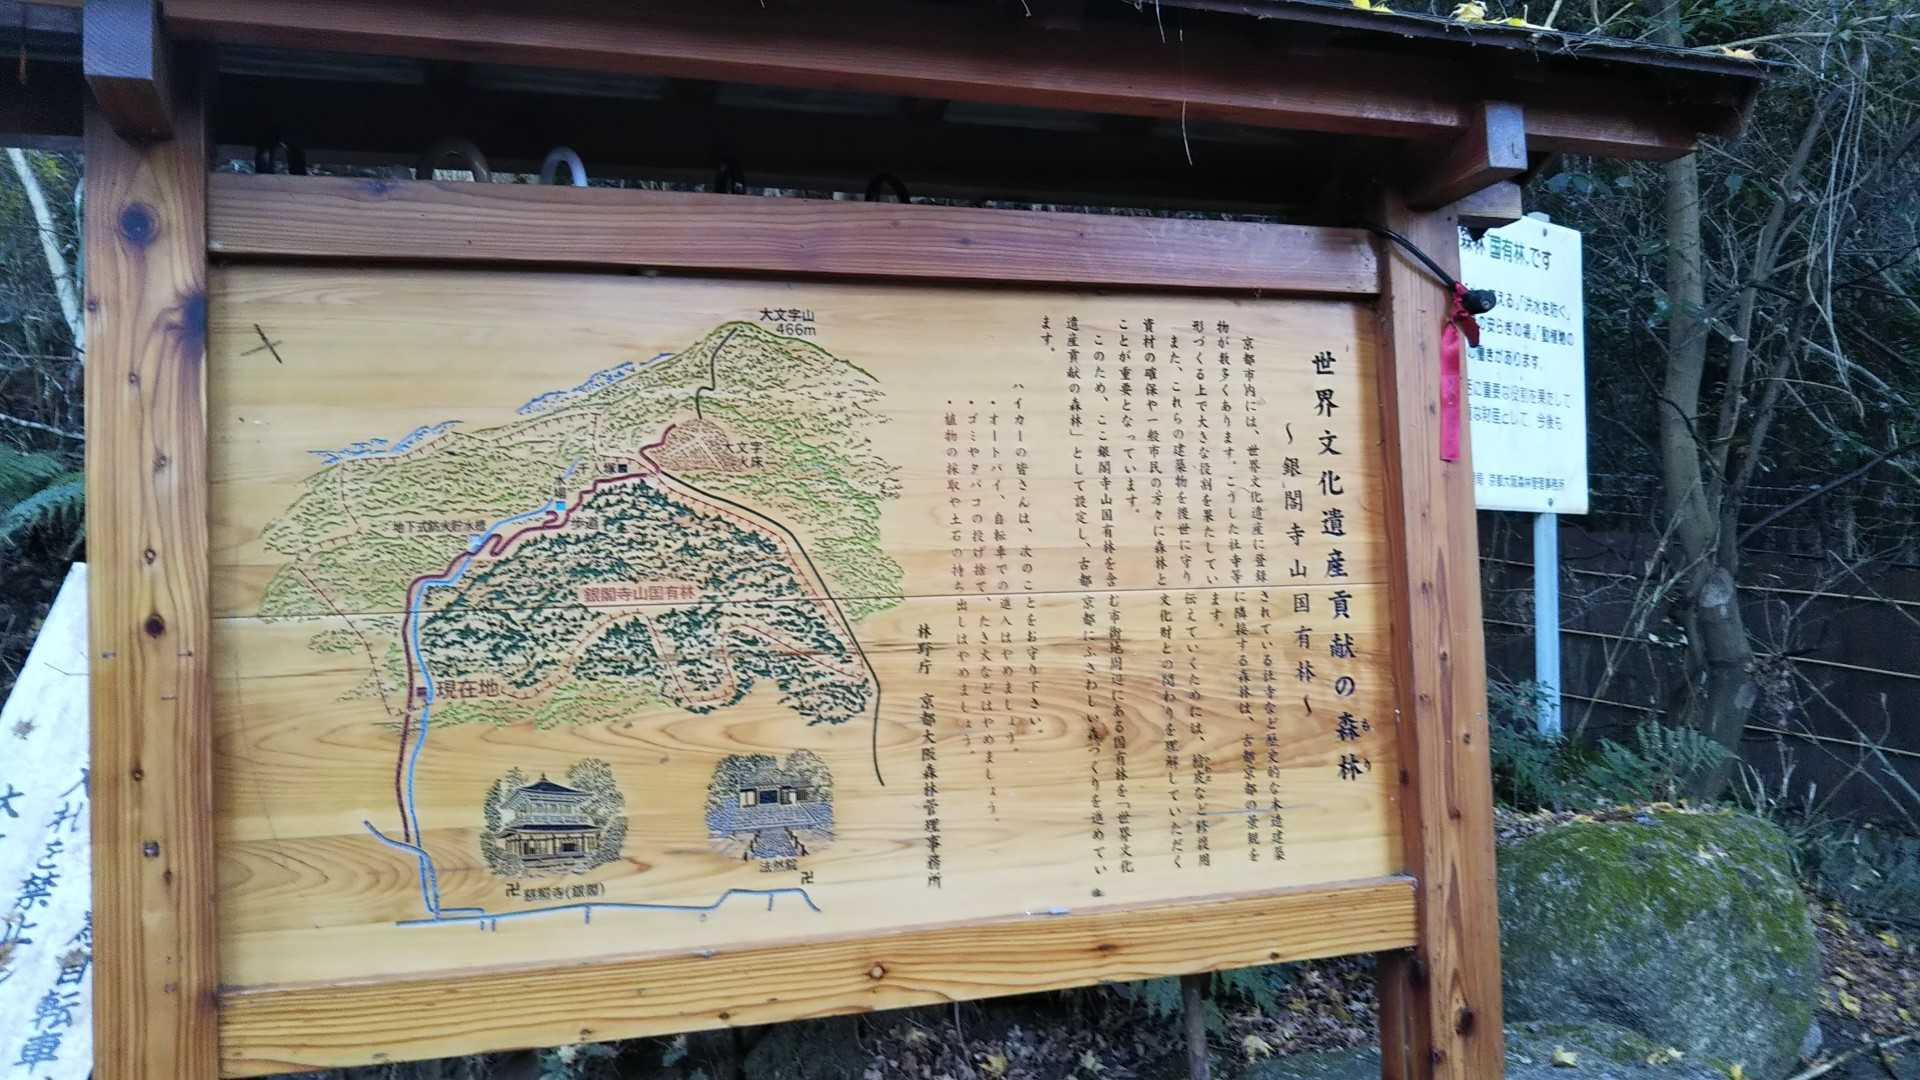 世界文化遺産貢献の森林
もり
～銀閣寺山国有林～
京都市内には、世界文化遺産に登録されている社寺など歴史的な木造建築
物が数多くあります。こうした社寺等に隣接する森林は、古都京都の景観を
形づくる上で大きな役割を果たしています。
また、これらの建築物を後世に守り伝えていくためには、檜皮など修復用
資材の確保や一般市民の方々に森林と文化財との関わりを理解していただく
ことが重要となっています。
このため、ここ銀閣寺山国有林を含む市街地周辺にある国有林を「世界文化
遺産貢献の森林」として設定し、古都京都にふさわしい森づくりを進めてい
ます。
ハイカーの皆さんは、次のことをお守り下さい。
・オートバイ、自転車での進入はやめましょう。
・ゴミやタバコの投げ捨て、たき火などはやめましょう。
・植物の採取や土石の持ち出しはやめましょう。
林野庁 京都大阪森林管理事務所
大文字山
466m
大文字
火床
千人塚
水場
歩道
地下式防火貯水槽
銀閣寺山国有林
現在地
卍 慈照寺(銀閣)
法然院
卍
森林「国有林」です
える」「洪水を防ぐ」
の安らぎの場」「動植物の
働きがあります。
に重要な役割を果たして
な財産として、今後も
京都大阪森林管理事務所
自転車
入れを禁止
大